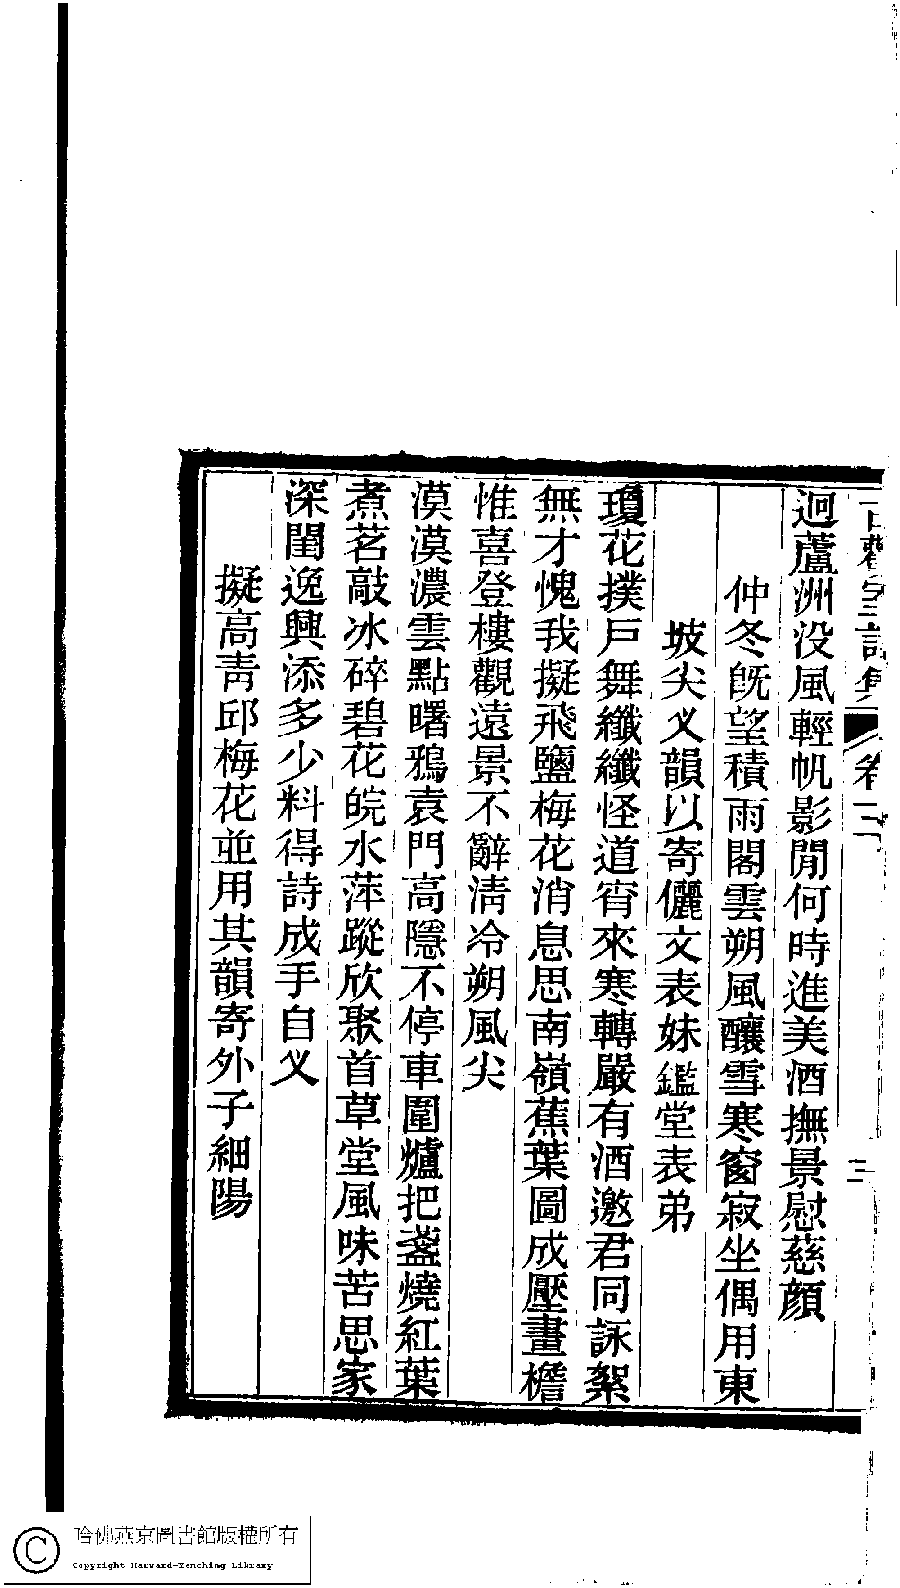 迥蘆洲没風輕帆影閒何時進美酒撫景慰慈顏
仲冬旣望積雨閣雲朔風釀雪寒窗寂坐偶用東
坡尖义韻以寄儷文表妹鑑堂表弟
瓊花撲戸舞纖纖怪道宵來寒轉嚴有酒邀君同詠絮
無才愧我擬飛鹽梅花消息思南嶺蕉葉圖成壓畫檐
惟喜登樓觀遠景不辭淸冷朔風尖
漠漠濃雲點曙鴉袁門高隱不停車圍爐把盞燒紅葉
煮茗敲冰碎碧花皖水萍蹤欣聚首草堂風味苦思家
深閨逸興添多少料得詩成手自义
擬高靑邱梅花並用其韻寄外子細陽
卷二
二
哈佛燕京圖書館版權所有
Copyright Harvard-Yenching Library